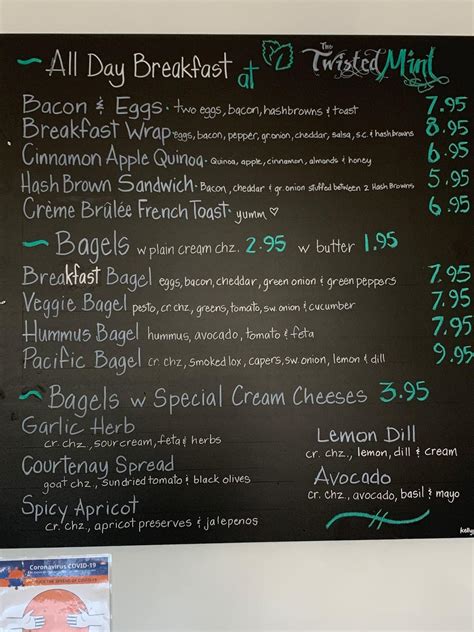 ~ All Day Breakfast at The Twisted Mint
Bacon & Eggs - two eggs, bacon, hashbrowns & toast 7.95
Breakfast Wrap - eggs, bacon, pepper, gr.onion, cheddar, salsa, s.c. & hashbrowns 8.95
Cinnamon Apple Quinoa - Quinoa, apple, cinnamon, almonds & honey 6.95
Hash Brown Sandwich - Bacon, cheddar & gr.onion stuffed between 2 Hash Browns 5.95
Crème Brûlée French Toast - yumm ♡ 6.95
~ Bagels w plain cream chz. 2.95 w butter 1.95
Breakfast Bagel eggs, bacon, cheddar, green onion & green peppers 7.95
Veggie Bagel pesto, cr.chz, greens, tomato, sw.onion & cucumber 7.95
Hummus Bagel hummus, avocado, tomato & feta 7.95
Pacific Bagel cr. chz, smoked lox, capers, sw.onion, lemon & dill 9.95
~ Bagels w Special Cream Cheeses 3.95
Garlic Herb
cr. chz., sour cream, feta & herbs
Courtenay Spread
goat chz, sundried tomato & black olives
Spicy Apricot
cr. chz., apricot preserves & jalepenos
Lemon Dill
cr. chz., lemon, dill & cream
Avocado
cr. chz, avocado, basil & mayo
kelly
Coronavirus COVID-19